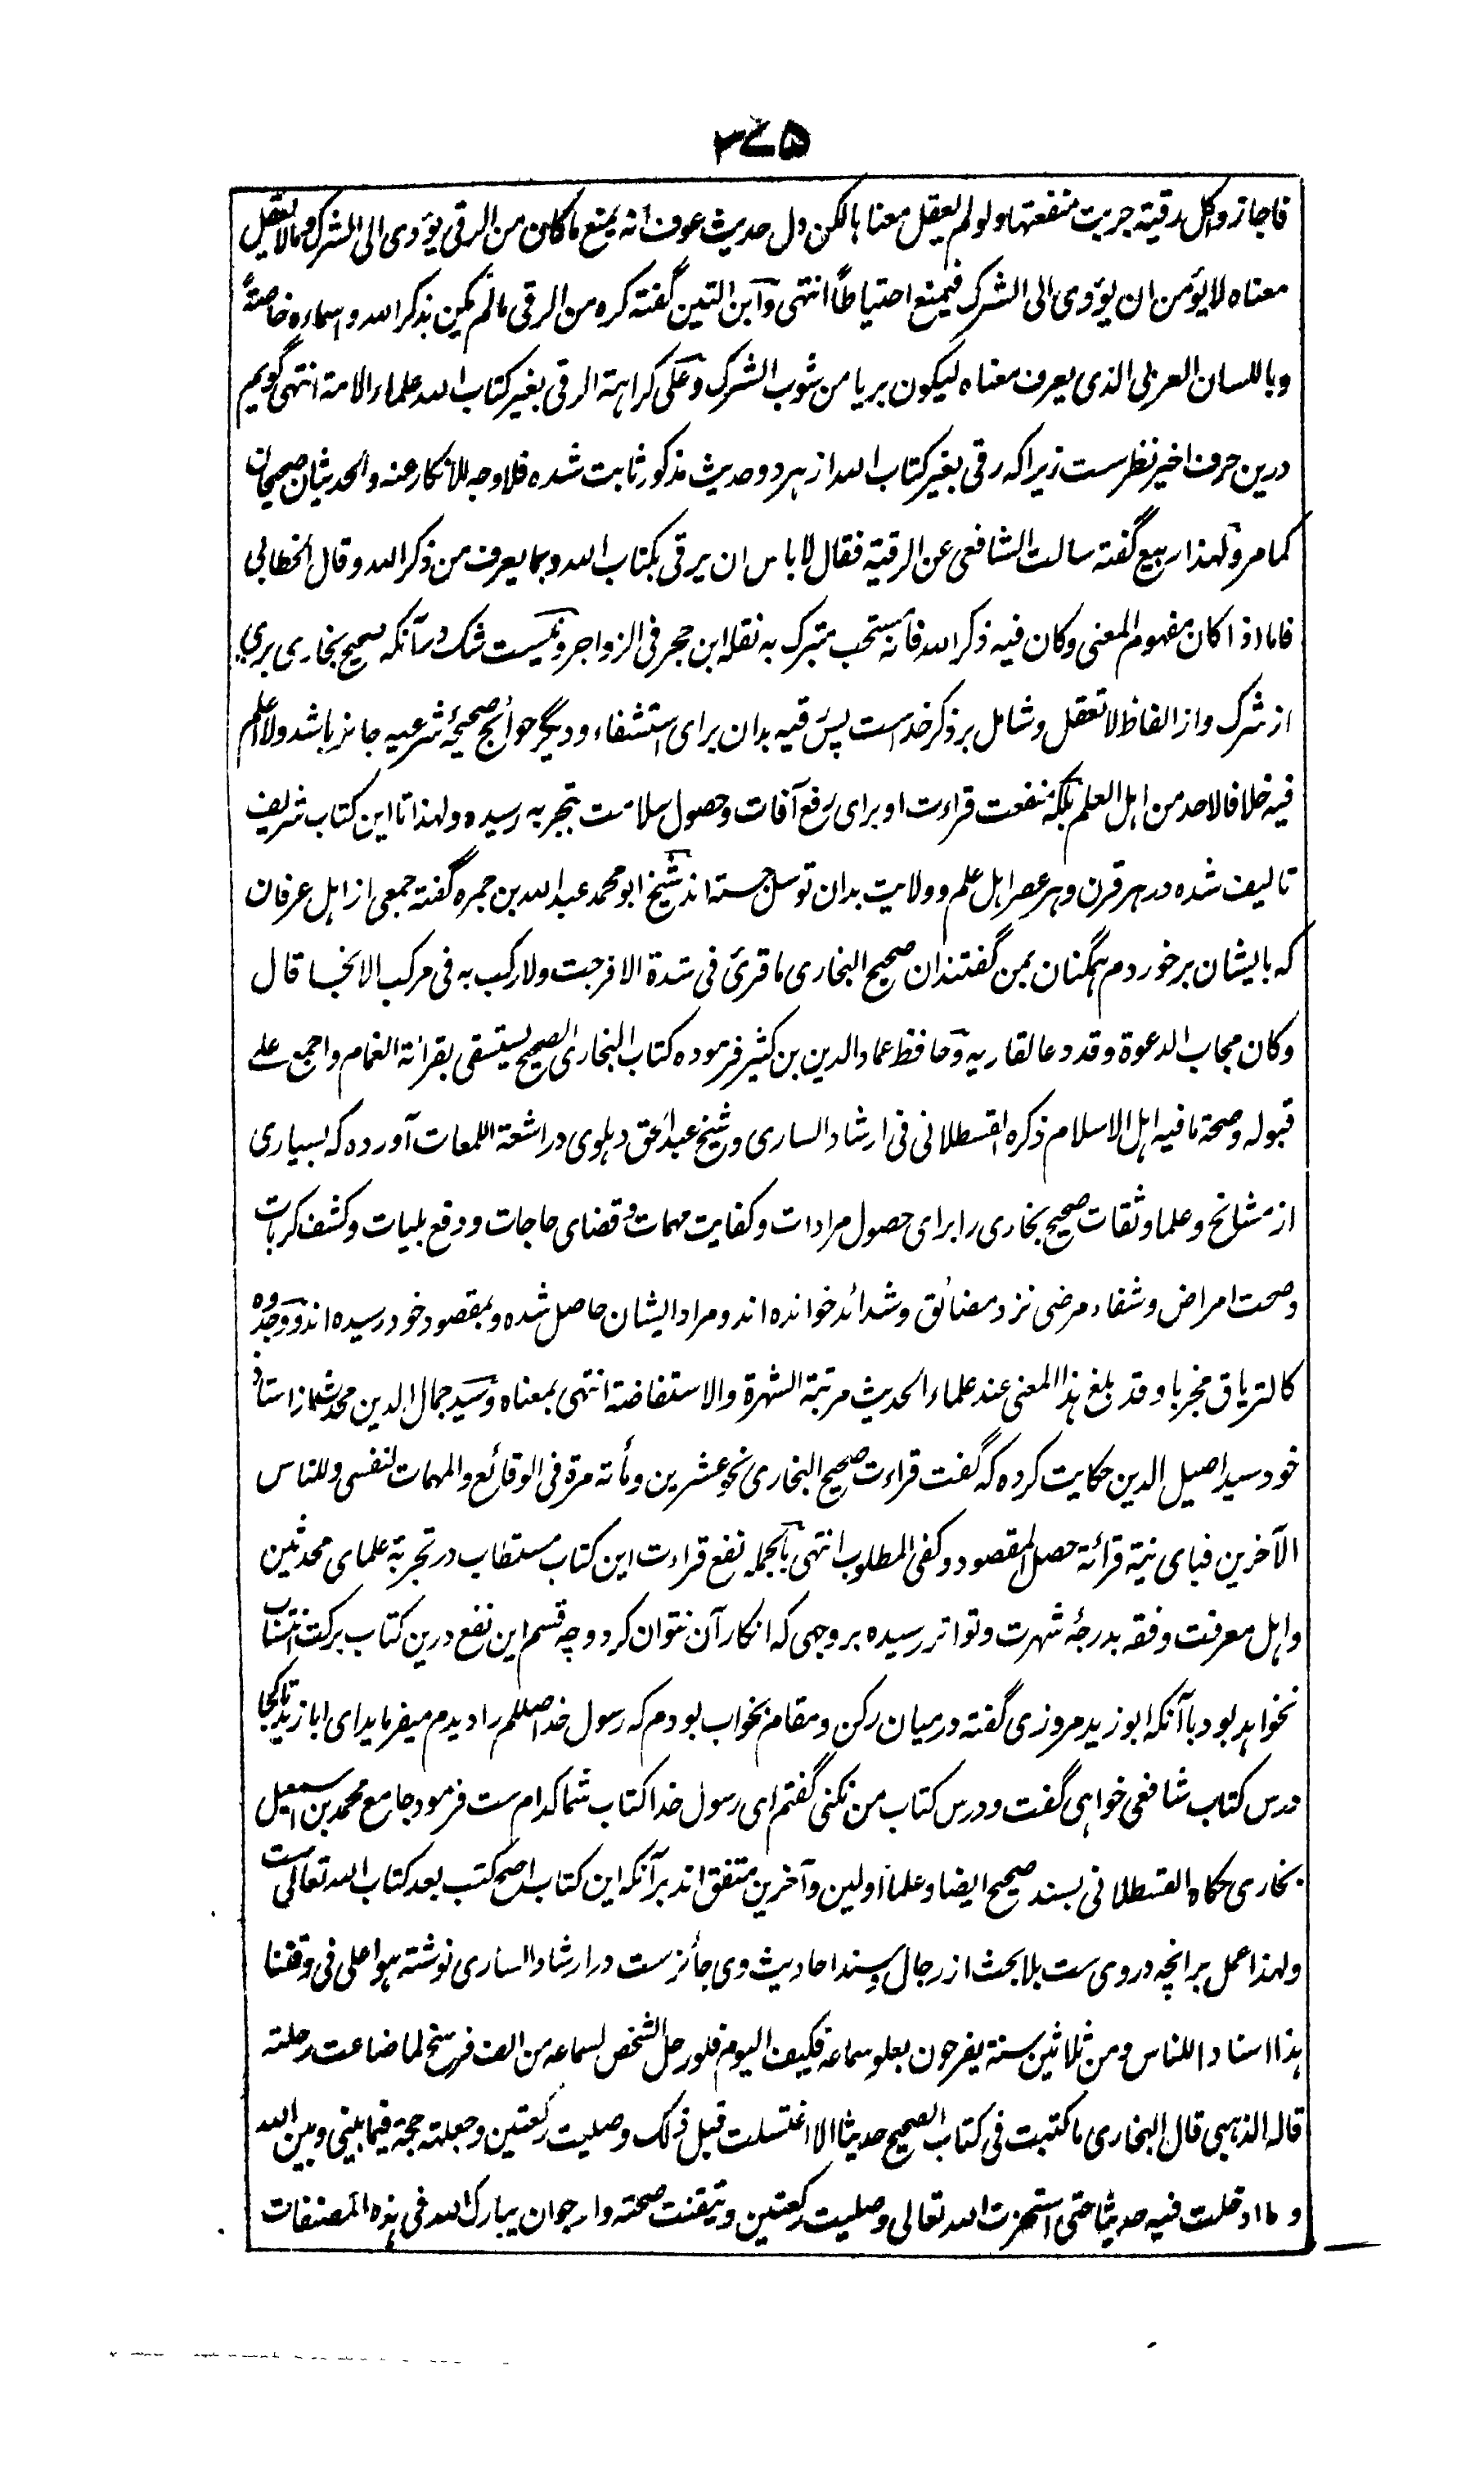 ۲۷۵
فاجازوا کل رقیة جربت منفعتها ولو لم یعقل معناها لکن دل حدیث عوف انه یمنع ما کان من الرقی یؤدی الی الشرک وما لا یعقل
معناه لا یؤمن ان یؤدی الی الشرک فیمنع احتیاطاً انتهی وابن التین گفته کره من الرقی ما لم یکن بذکر الله واسماءه خاصةً
وباللسان العربی الذی یعرف معناه لیکون بریا من شوب الشرک وعلی کراهة الرقی بغیر کتاب الله علماء الامة انتهی گویم
درین حرف اخیر نظرست زیرا که رقی بغیر کتاب الله از هر دو حدیث مذکور ثابت شده فلا وجه للانکار عنه والحدیثان صحیحان
کما مر ولهذا ربیع گفته سالت الشافعی عن الرقیة فقال لا باس ان یرقی بکتاب الله وبما یعرف من ذکر الله وقال الخطابی
فاما اذا کان مفهوم المعنی وکان فیه ذکر الله فانه مستحب متبرک به نقله ابن حجر فی الزواجر ونیست شک در آنکه صحیح بخاری بری
از شرک واز الفاظ لا تعقل وشامل بر ذکر خداست پس رقیه بدان برای استشفاء ودیگر حوائج صحیحهٔ شرعیه جائز باشد ولا اعلم
فیه خلافا لاحد من اهل العلم بلکه منفعت قراءت او برای رفع آفات وحصول سلامت بتجربه رسیده ولهذا تا این کتاب شریف
تالیف شده در هر قرن وهر عصر اهل علم وولایت بدان توسل جسته اند شیخ ابو محمد عبد الله بن جمره گفته جمعی از اهل عرفان
که بایشان برخوردم همگنان بمن گفتند ان صحیح البخاری ما قرئ فی شدة الا فرجت ولا رکب به فی مرکب الا نجا قال
وکان مجاب الدعوة وقد دعا لقاریه وحافظ عماد الدین بن کثیر فرموده کتاب البخاری الصحیح یستسقی بقرائة الغمام واجمع علی
قبوله وصحة ما فیه اهل الاسلام ذکره القسطلانی فی ارشاد الساری وشیخ عبد الحق دهلوی در اشعة اللمعات آورده که بسیاری
از مشائخ وعلما وثقات صحیح بخاری را برای حصول مرادات وکفایت مهمات وقضای حاجات ودفع بلیات وکشف کربات
وصحت امراض وشفاء مرضی نزد مضائق وشدائد خوانده اند ومراد ایشان حاصل شده وبمقصود خود رسیده اند ووجدوه
کالتریاق مجربا وقد بلغ هذا المعنی عند علماء الحدیث مرتبة الشهرة والاستفاضة انتهی بمعناه وسید جمال الدین محدث از استاذ
خود سید اصیل الدین حکایت کرده که گفت قراءت صحیح البخاری نحو عشرین ومأته مرة فی الوقائع والمهمات لنفسی وللناس
الآخرین فبای نیة قرائة حصل المقصود وکفی المطلوب انتهی بالجمله نفع قراءت این کتاب مستطاب در تجربهٔ علمای محدثین
واهل معرفت وفقه بدرجهٔ شهرت وتواتر رسیده بر وجهی که انکار آن نتوان کرد وچه قسم این نفع درین کتاب برکت انتساب
نخواهد بود با آنکه ابو زید مروزی گفته درمیان رکن ومقام بخواب بودم که رسول خدا صللم را دیدم میفرماید ای ابا زید تا کجا
درس کتاب شافعی خواهی گفت ودرس کتاب من نکنی گفتم ای رسول خدا کتاب شما کدام ست فرمود جامع محمد بن اسمعیل
بخاری حکاه القسطلانی بسند صحیح ایضا وعلما اولین وآخرین متفق اند بر آنکه این کتاب اصح کتب بعد کتاب الله تعالی ست
ولهذا عمل بر انچه در وی ست بلا بحث از رجال وسند احادیث وی جائزست در ارشاد الساری نوشته هو اعلی فی وقتنا
هذا اسنادا للناس ومن ثلاثین سنة یفرحون بعلو سماعه فکیف الیوم فلو رحل الشخص لسماعه من الف فرسخ لما ضاعت رحلته
قاله الذهبی قال البخاری ما کتبت فی کتاب الصحیح حدیثا الا اغتسلت قبل ذلک وصلیت رکعتین وجعلته حجة فیما بینی وبین الله
وما ادخلت فیه حدیثا حتی استخرت الله تعالی وصلیت رکعتین وتیقنت صحته وارجو ان یبارک الله فی هذه المصنفات